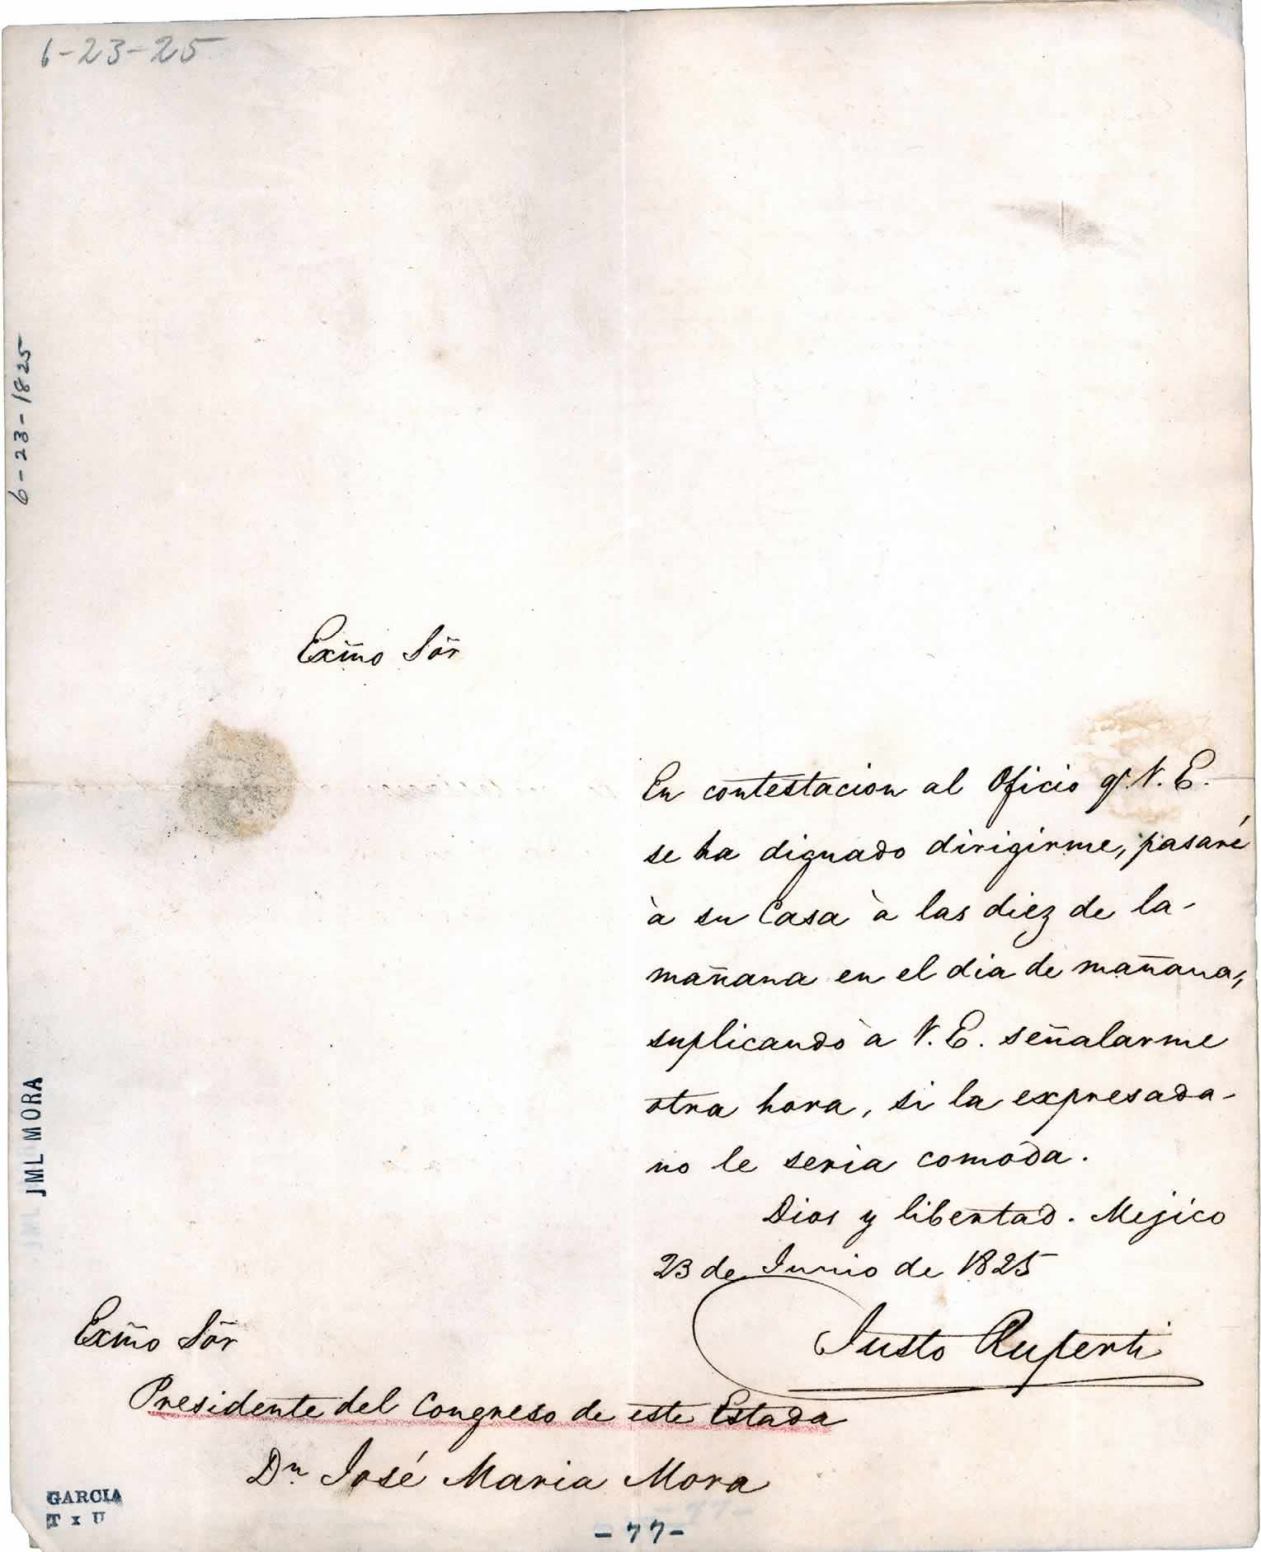 6-23-25
6-23-1825
Exm̃o Sõr
En contestacion al Oficio q.e V. E.
se ha dignado dirigirme, pasaré
à su Casa à las diez de la-
mañana en el dia de mañana,
suplicando à V. E. señalarme
otra hora, si la expresada-
no le seria comoda.
Dios y libertad. Mejico
23 de Junio de 1825
Justo Ruperti
Exm̃o Sõr
Presidente del Congreso de este Estado
Dn José Maria Mora
JML MORA
GARCIA
T x U
-77-